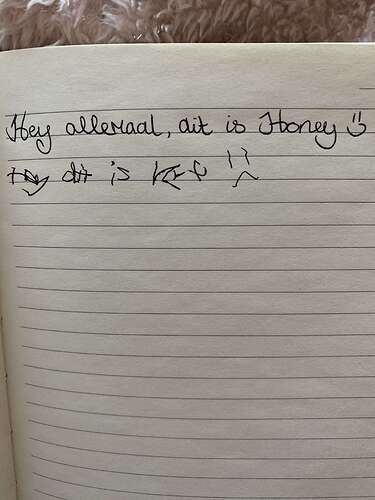 Hey allemaal, dit is Honey :)
dit is